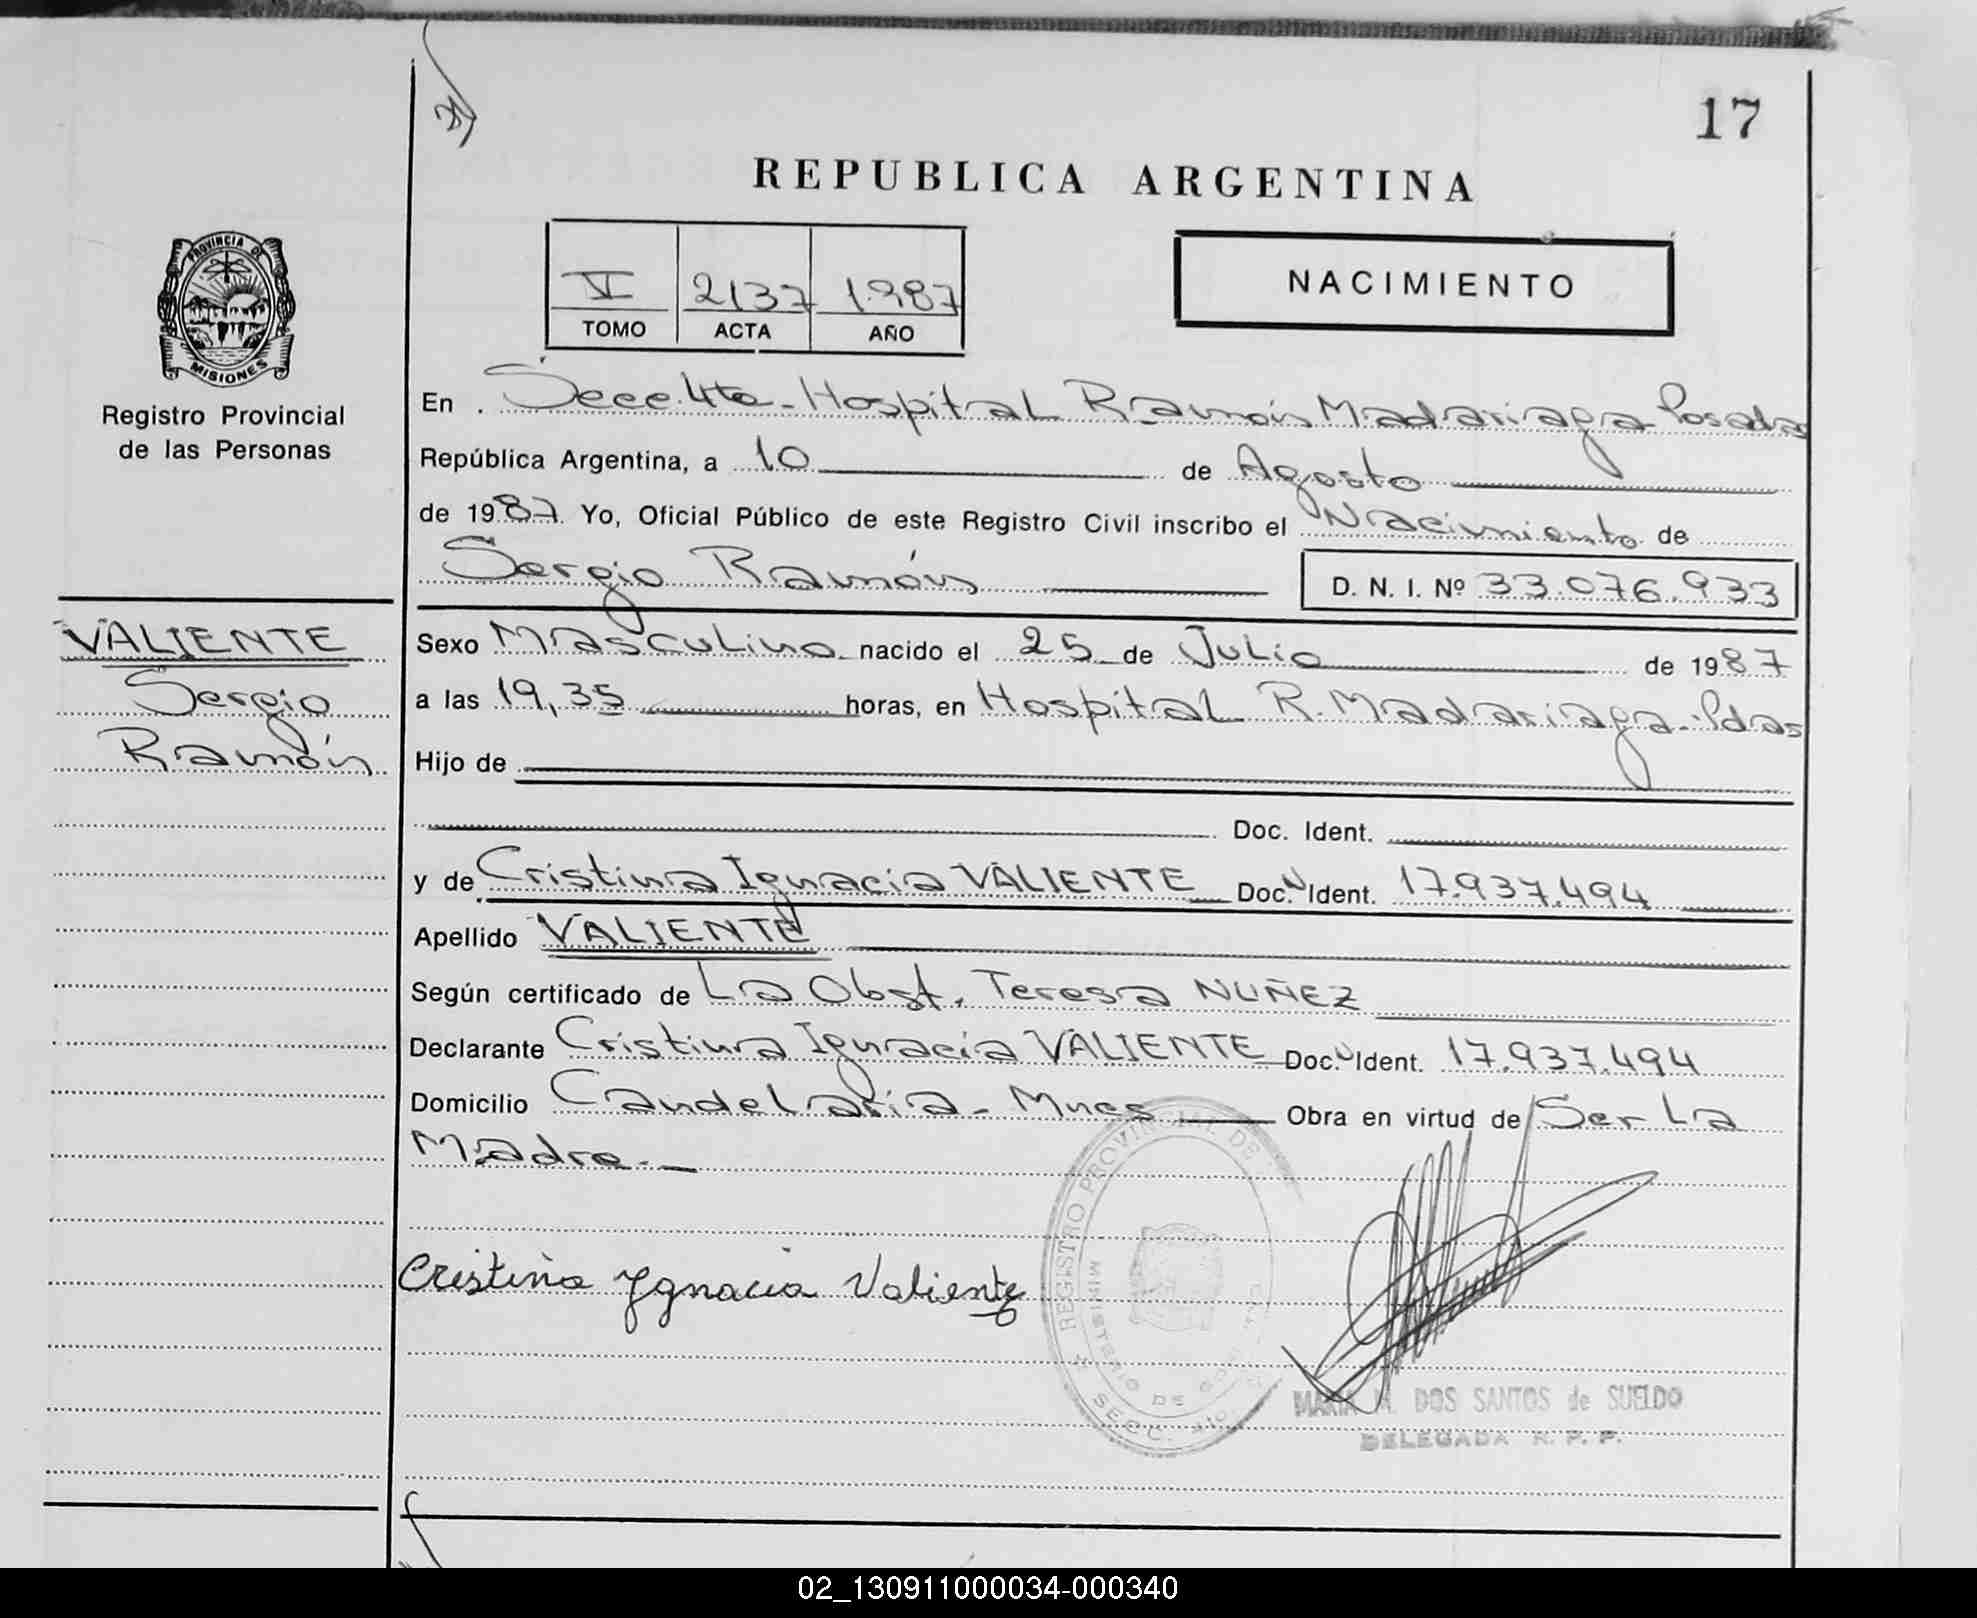 17
REPUBLICA ARGENTINA
V 2137 1.987
TOMO ACTA AÑO
NACIMIENTO
PROVINCIA DE
MISIONES
Registro Provincial
de las Personas
En Secc. 4ta - Hospital Ramón Madariaga Posadas
República Argentina, a 10 de Agosto
de 1987. Yo, Oficial Público de este Registro Civil inscribo el Nacimiento de
Sergio Ramón
D. N. I. Nº 33.076.933
VALIENTE
Sergio
Ramón
Sexo Masculino nacido el 25 de Julio de 1987
a las 19,35 horas, en Hospital R. Madariaga - Pdas
Hijo de
Doc. Ident.
y de Cristina Ignacia VALIENTE Doc. Ident. 17.937.494
Apellido VALIENTE
Según certificado de La Obst. Teresa NUÑEZ
Declarante Cristina Ignacia VALIENTE Doc. Ident. 17.937.494
Domicilio Candelaria - Mnes Obra en virtud de Ser La
Madre.-
Cristina Ygnacia Valiente
REGISTRO PROVINCIAL DE
MINISTERIO DE
SECC. 4to
MARIA M. DOS SANTOS de SUELDO
DELEGADA R. P. P.
02_130911000034-000340